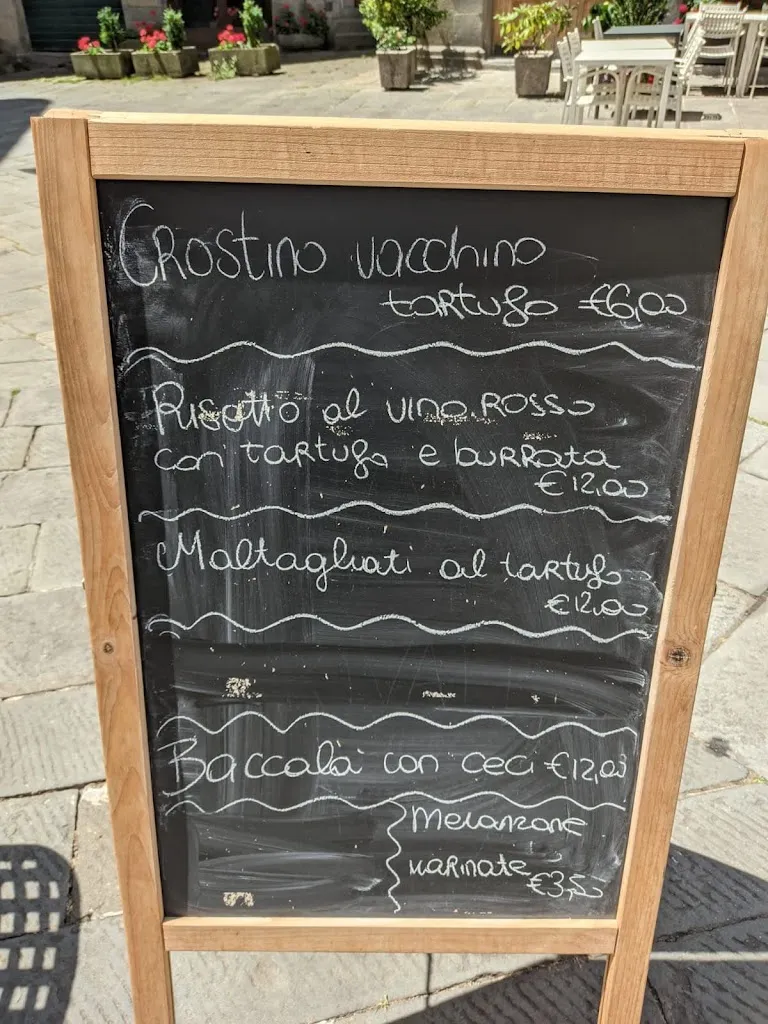 Crostino vacchino
tartufo €6,00
Risotto al vino rosso
con tartufo e burrata
€12,00
Maltagliati al tartufo
€12,00
Baccalà con ceci €12,00
Melanzane
marinate
€3,50